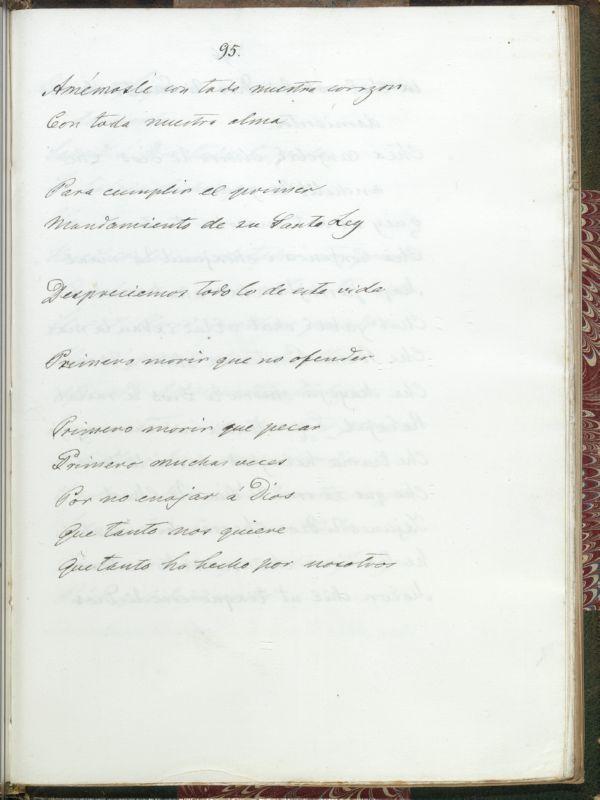 95.
Amémosle con todo nuestro corazon
Con toda nuestra alma
Para cumplir el primer
Mandamiento de su Santa Ley
Despreciemos todo lo de esta vida
Primero morir que no ofender
Primero morir que pecar
Primero muchas veces
Por no enojar á Dios
Que tanto nos quiere
Que tanto ha hecho por nosotros